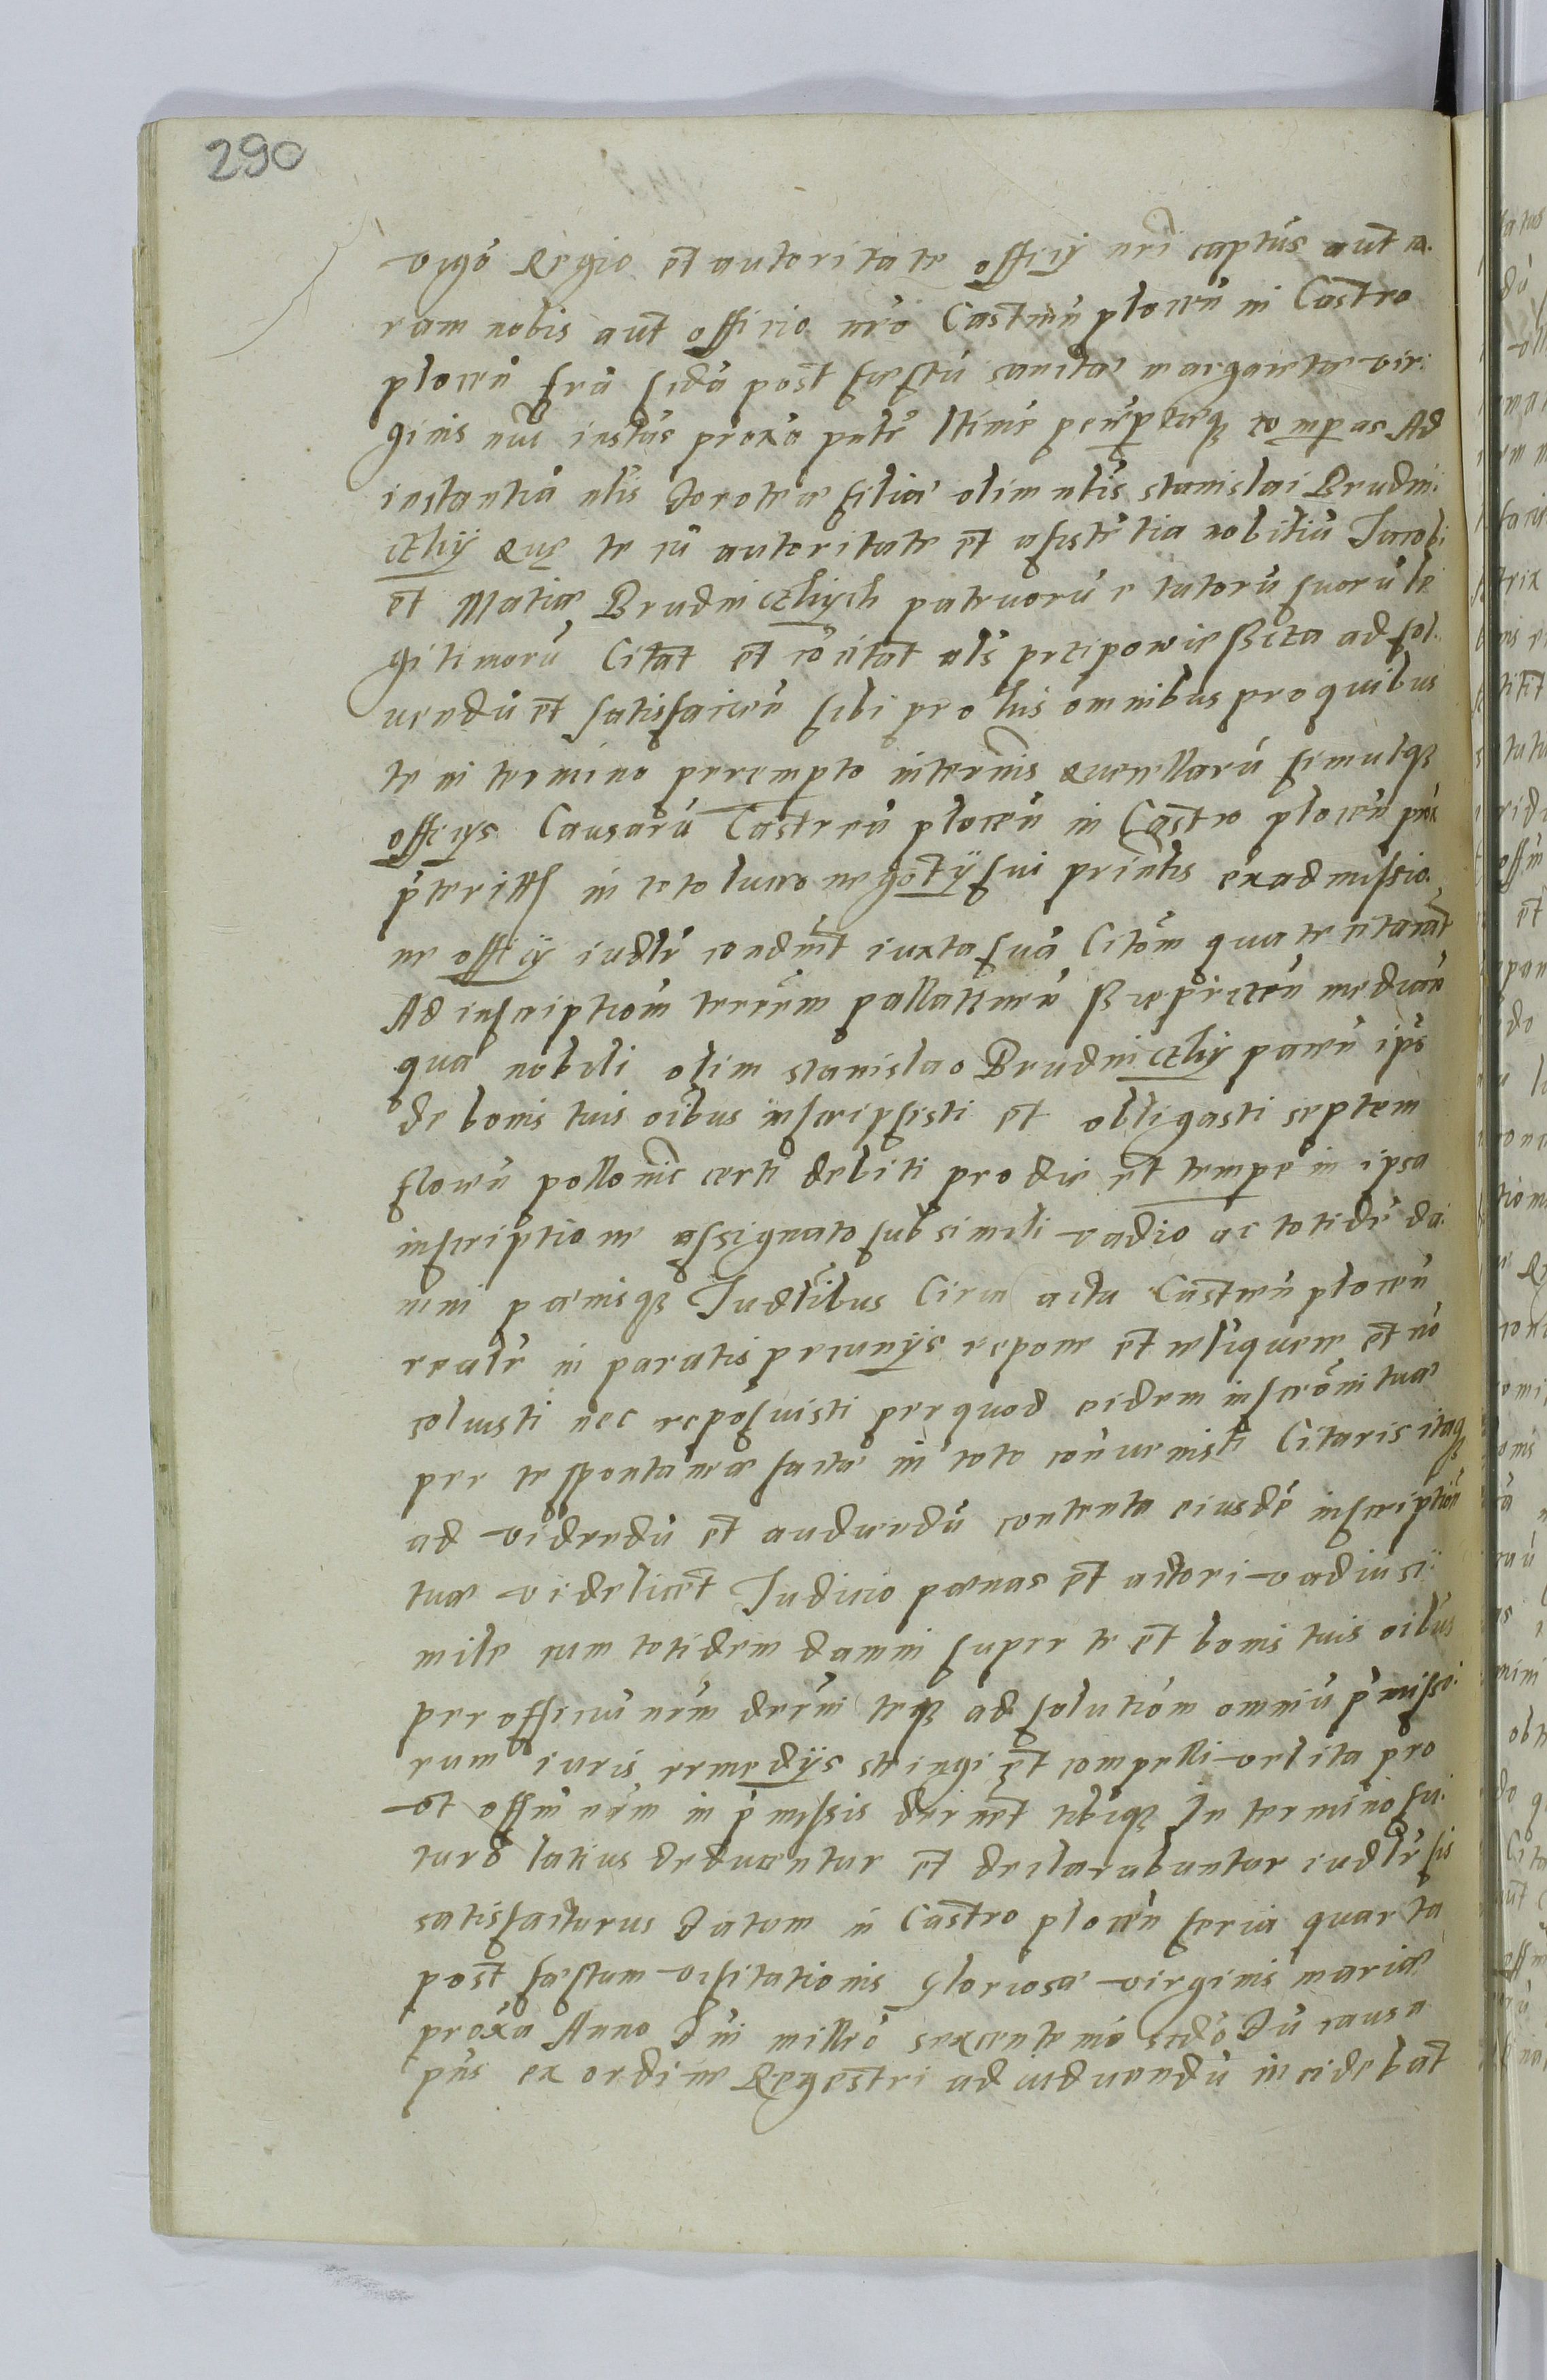 290
vigo Regio et autoritate officij nri captus aut co
ram nobis aut officio nro Castren plocen in Castro
plocen fra scda post festu sanctae margaretae vir
ginis nuc instus proxo pntr ltime perptieq compas Ad
instantia nlis dorotheae filiae olim nlis stanislai Brudni
czkij Quę te cu autoritate et assistetia nobiliu Jacobi
et Matiae Brudniczkych patruoru e tutoru suoru le
gitimoru Citat et cocitat als przipowieszcza ad sol
uendu et satisfacien sibi pro his omnibus pro quibus
te in termino perempto intermis Querellaru simulq
officijs Causaru Castren plocen in Castro plocen pns
pteritis in toto lucro negotij sui printis ex admissio
ne officij iudlr condemt iuxta sua Citom qua te citarat
Ad inscriptiom terrem pallatinen median
qua nobili olim stanislao Brudniczky paren ips
de bonis tuis oibus inscripsisti et obligasti septem
floren pollonic certi debiti pro die et tempe in ipsa
inscriptione assignato sub simili vadio ac totide da
mni poenisq Judlibus Circa acta Castren plocen
realr in paratis pecunijs repone et reliquere et no
soluisti nec reposuisti per quod eidem inscroni tuae
per te spontaneae factae in toto conuenisti Citaris itaq
ad videndu et audiendu contenta eiusde inscription
tuae videlicet Judicio poenas et actori vadiu si
mile cum totidem damni super te et bonis tuis oibus
per officiu nrm decerni teq ad solutiom omniu pmisso
rum iuris remedijs stringi et compelli vel ita pro
vt offm nrm in pmissis decrnet tibiq In termino fu
turo latius deducentur et declarabuntur iudlr sis
satisfacturus Datum in Castro plocen feria quarta
post festum visitationis gloriosae virginis mariae
proxa Anno Dni millro sexcentemo scdo Du causa
pns ex ordine Regestri ad iudicandu incidebat